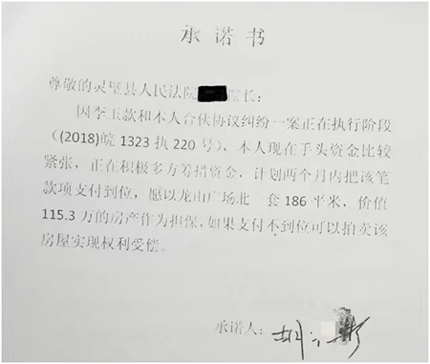 承诺书
尊敬的灵璧县人民法院院长：
因李玉款和本人合伙协议纠纷一案正在执行阶段
（(2018)皖 1323 执 220 号），本人现在手头资金比较
紧张，正在积极多方筹措资金，计划两个月内把该笔
款项支付到位，愿以龙山广场北一套 186 平米，价值
115.3 万的房产作为担保，如果支付不到位可以拍卖该
房屋实现权利受偿。
承诺人：胡